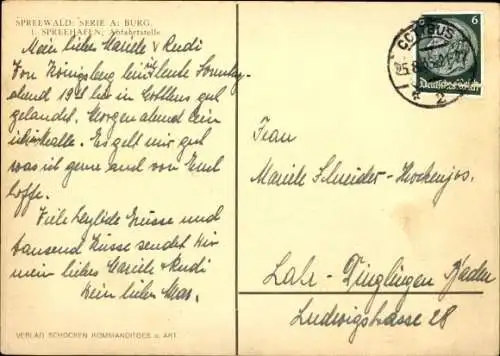 SPREEWALD: SERIE A: BURG.
1. SPREEHAFEN, Abfahrtstelle
Mein lieber Mariele & Rudi
Von Königsberg bin heute Sonntag-
abend in Cottbus gut
gelandet. Morgen abend bin
ich Halle. Es geht mir gut
was ich gerne auch von Euch
hoffe.
Viele herzliche Grüsse und
tausend Küsse sendet Dir
mein liebes Mariele & Rudi
Dein lieber Max.
VERLAG SCHOCKEN KOMMANDITGES a. AKT
COTTBUS
2
6
Deutsches Reich
Frau
Mariele Schneider-Hockenjos.
Lahr-Dinglingen Baden
Ludwigstrasse 28